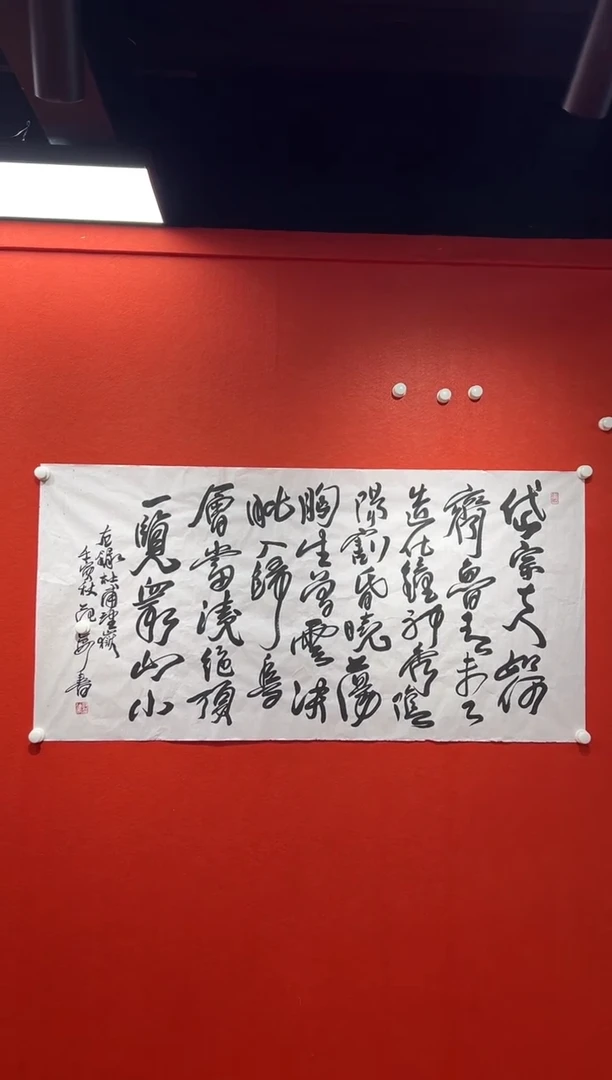 岱宗夫如何
齊魯青未了
造化鍾神秀陰
陽割昏曉蕩
胸生曾雲決
眥入歸鳥
會當淩絕頂
一覽眾山小
右錄杜甫望嶽
壬寅秋 書